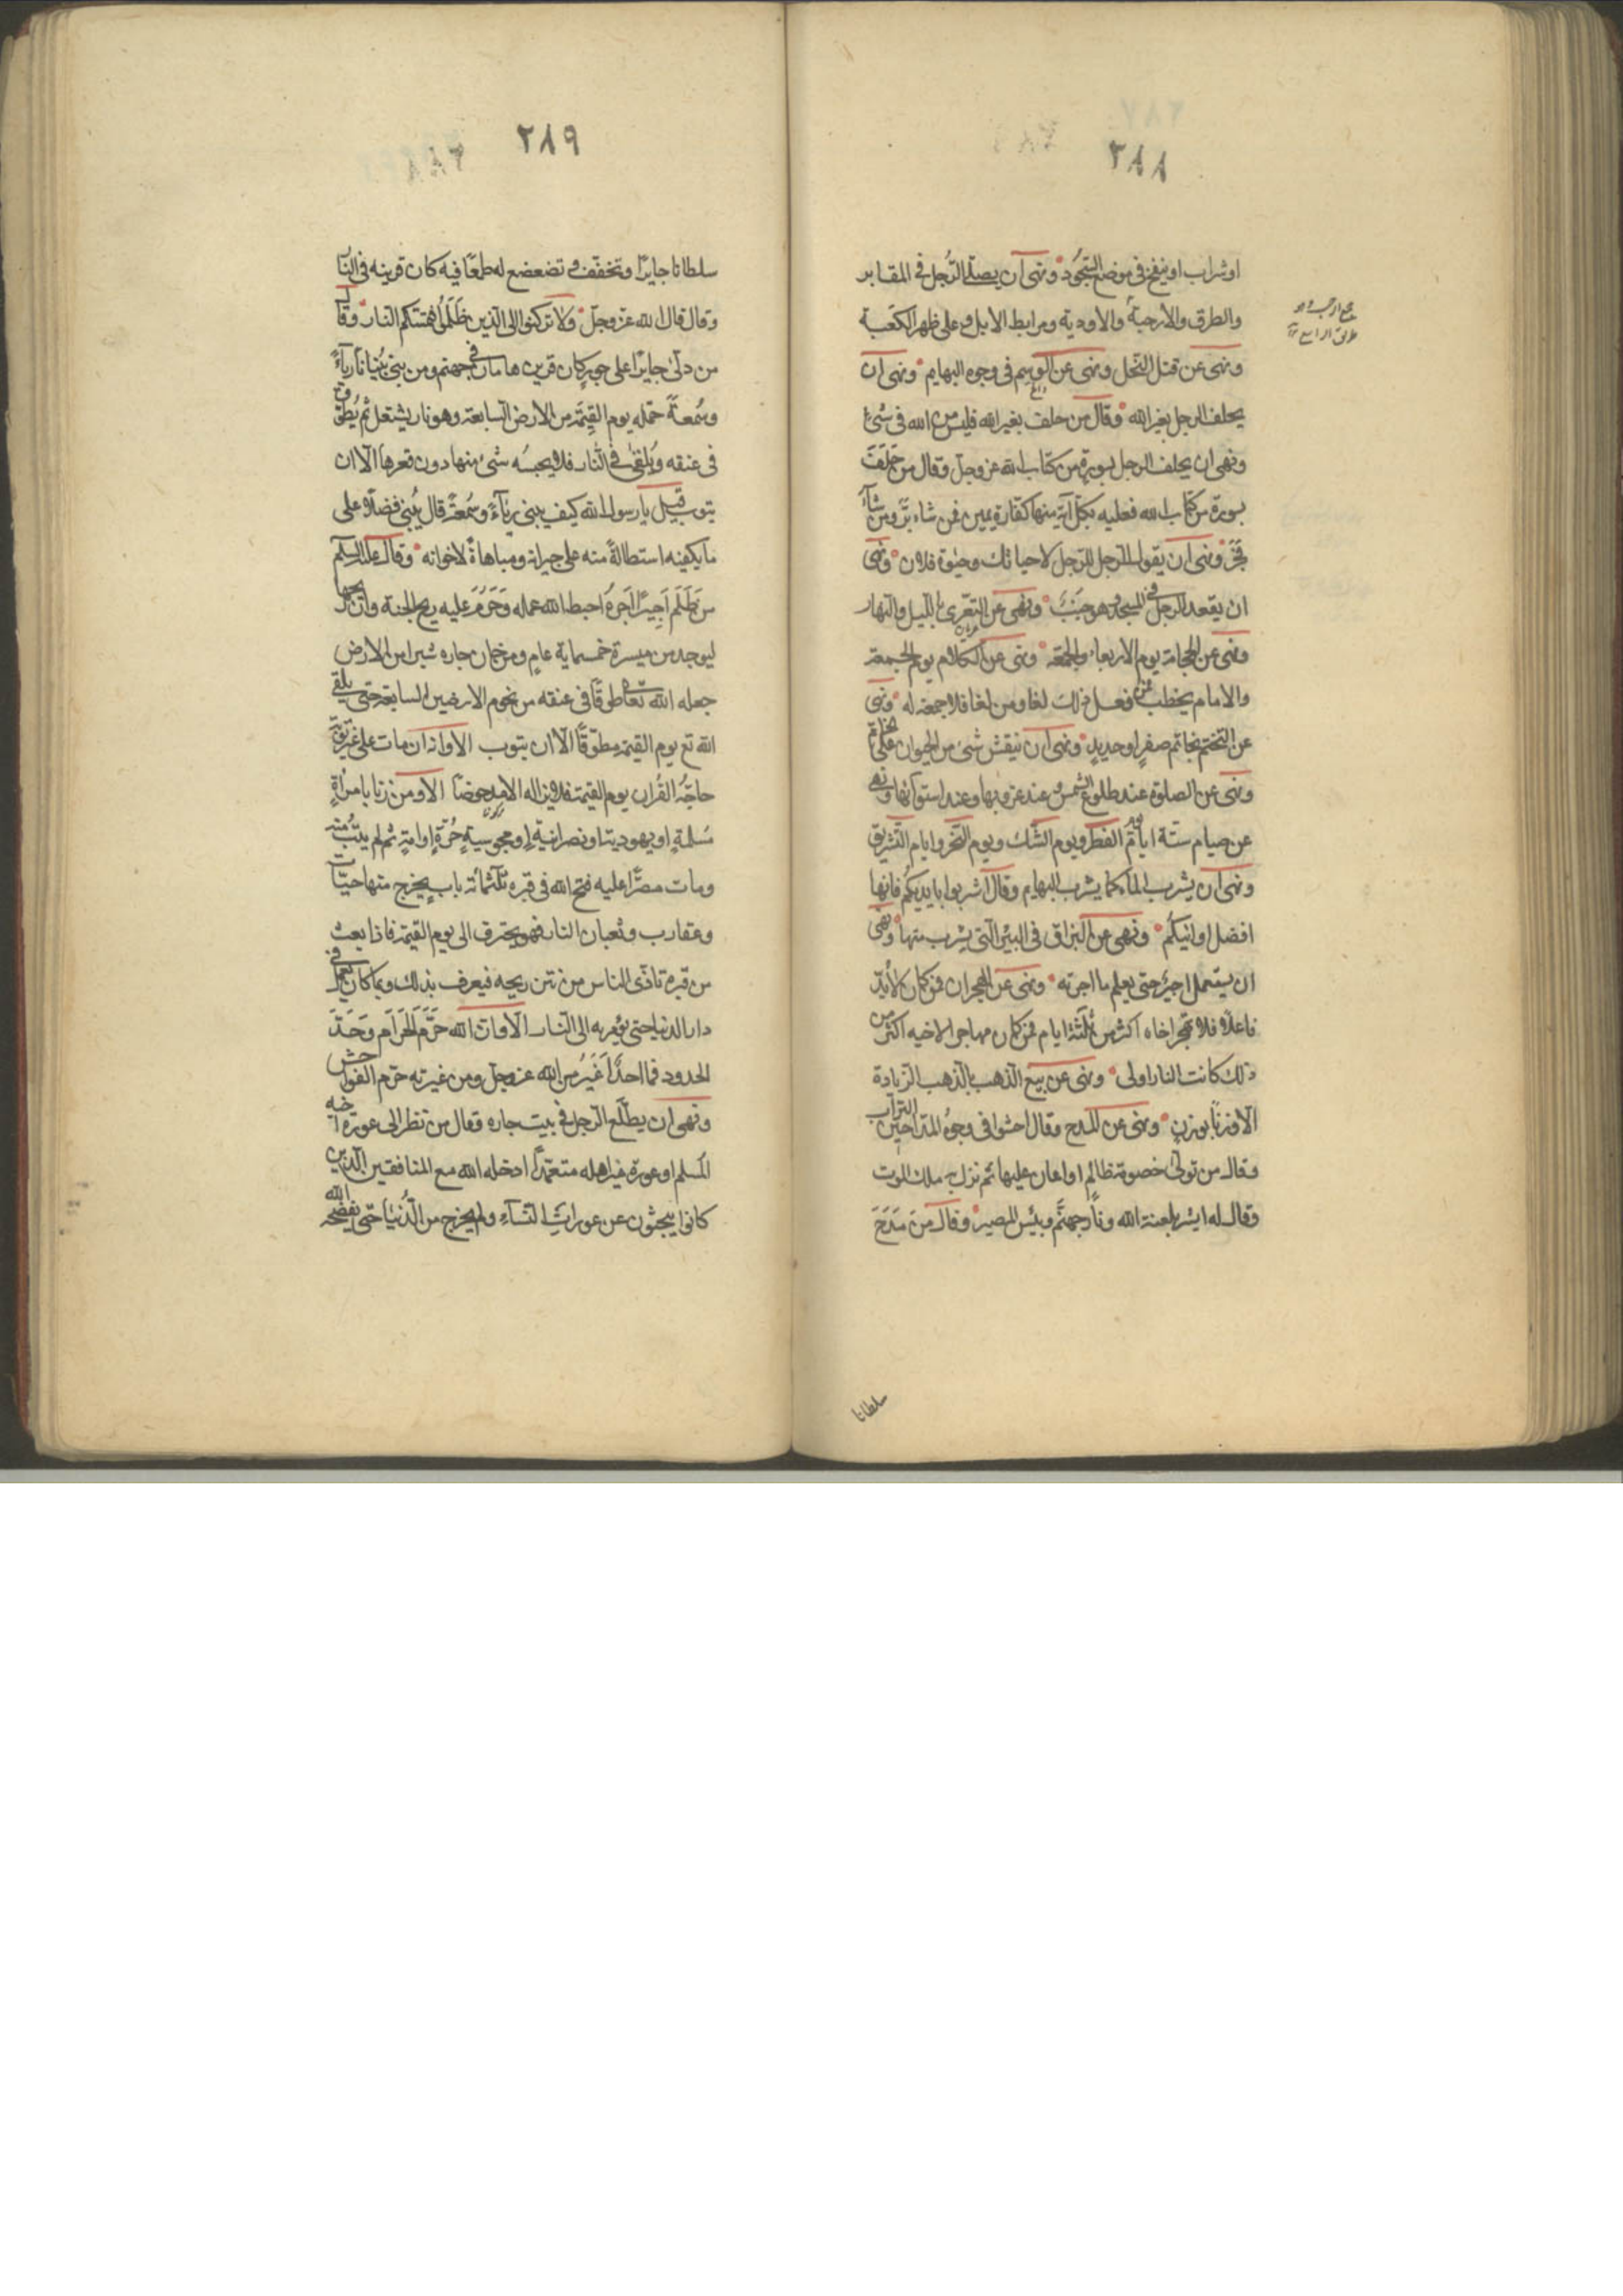 ٢٨٨
او شراب او ينفخ فى موضع السجود ونهى ان يصلى الرجل فى المقابر
والطرق والارحية والاودية ومرابط الابل وعلى ظهر الكعبة
ونهى عن قتل النحل ونهى عن الوسم فى وجوه البهايم ونهى ان
يحلف الرجل بغير الله وقال من حلف بغير الله فليس من الله فى شئ
ونهى ان يحلف الرجل بسورة من كتاب الله عز وجل وقال من حلف
بسورة من كتاب الله فعليه بكل آية منها كفارة يمين فمن شاء برّ ومن شآء
فجر ونهى ان يقول الرجل للرجل لا حياتك وحيوة فلان ونهى
ان يقعد الرجل فى المسجد وهو جنب ونهى عن التعرى بالليل والنهار
ونهى عن الحجامة يوم الاربعاء والجمعة ونهى عن الكلام يوم الجمعة
والامام يخطب فمن فعل ذلك لغا ومن لغا فلا جمعة له ونهى
عن التختم بخاتم صفر او حديد ونهى ان ينقش شئ من الحيوان على الخاتم
ونهى عن الصلوة عند طلوع الشمس وعند غروبها وعند استوائها ونهى
عن صيام ستة ايام يوم الفطر ويوم الشك ويوم النحر وايام التشريق
ونهى ان يشرب الماء كما يشرب البهايم وقال اشربوا بايديكم فانها
افضل اوانيكم ونهى عن البزاق فى البئر التى يشرب منها ونهى
ان يستعمل اجير حتى يعلم ما اجرته ونهى عن الهجران فمن كان لا بدّ
فاعلا فلا يهجر اخاه اكثر من ثلثة ايام فمن كان مهاجرا لاخيه اكثر من
ذلك كانت النار اولى ونهى عن بيع الذهب بالذهب الزيادة
الا وزنا بوزن ونهى عن المدح وقال احثوا فى وجوه المداحين التراب
وقال من تولى خصومة ظالم او اعان عليها ثم نزل به ملك الموت
وقال له ابشر بلعنة الله ونار جهنم وبئس المصير وقال من مدح
سلطانا
٢٨٩
سلطانا جايرا وتخفف وتضعضع له طمعا فيه كان قرينه فى النار
وقال قال الله عز وجل ولا تركنوا الى الذين ظلموا فتمسكم النار وقال
من دلى جايرا على جور كان قرين هامان فى جهنم ومن بنى بنيانا رياء
وسمعة حمله يوم القيمة من الارض السابعة وهو نار يشتعل ثم يطوق
فى عنقه ويلقى فى النار فلا يحبسه شئ منها دون قعرها الا ان
يتوب قيل يا رسول الله كيف يبنى رياء وسمعة قال يبنى فضلا على
ما يكفيه استطالة منه على جيرانه ومباهاة لاخوانه وقال عليه السلم
من ظلم اجيرا اجره احبط الله عمله وحرم عليه ريح الجنة وان ريحها
ليوجد من ميسرة خمسماية عام ومن خان جاره شبرا من الارض
جعله الله تعا طوقا فى عنقه من تخوم الارضين السابعة حتى يلقى
الله تع يوم القيمة مطوقا الا ان يتوب
حاجه القران يوم القيمة فلا يزاله الا مدحوضا الا ومن زنا بامراة
مسلمة او يهودية او نصرانية او مجوسية حرة او امة ثم لم يتب منه
ومات مصرا عليه فتح الله فى قبره ثلثمائة باب يخرج منها حيات
وعقارب وثعبان النار فهو يحترق الى يوم القيمة فاذا بعث
من قبره تاذى الناس من نتن ريحه فيعرف بذلك وبما كان يعمل فى
دار الدنيا حتى يؤمر به الى النار الا وان الله حرم الحرام وحد
الحدود فما احد اغير من الله عز وجل ومن غيرته حرم الفواحش
ونهى ان يطلع الرجل فى بيت جاره وقال من نظر الى عورة اخيه
المسلم او عورة غير اهله متعمدا ادخله الله مع المنافقين الذين
كانوا يبحثون عن عورات النساء ولم يخرج من الدنيا حتى يفضحه الله